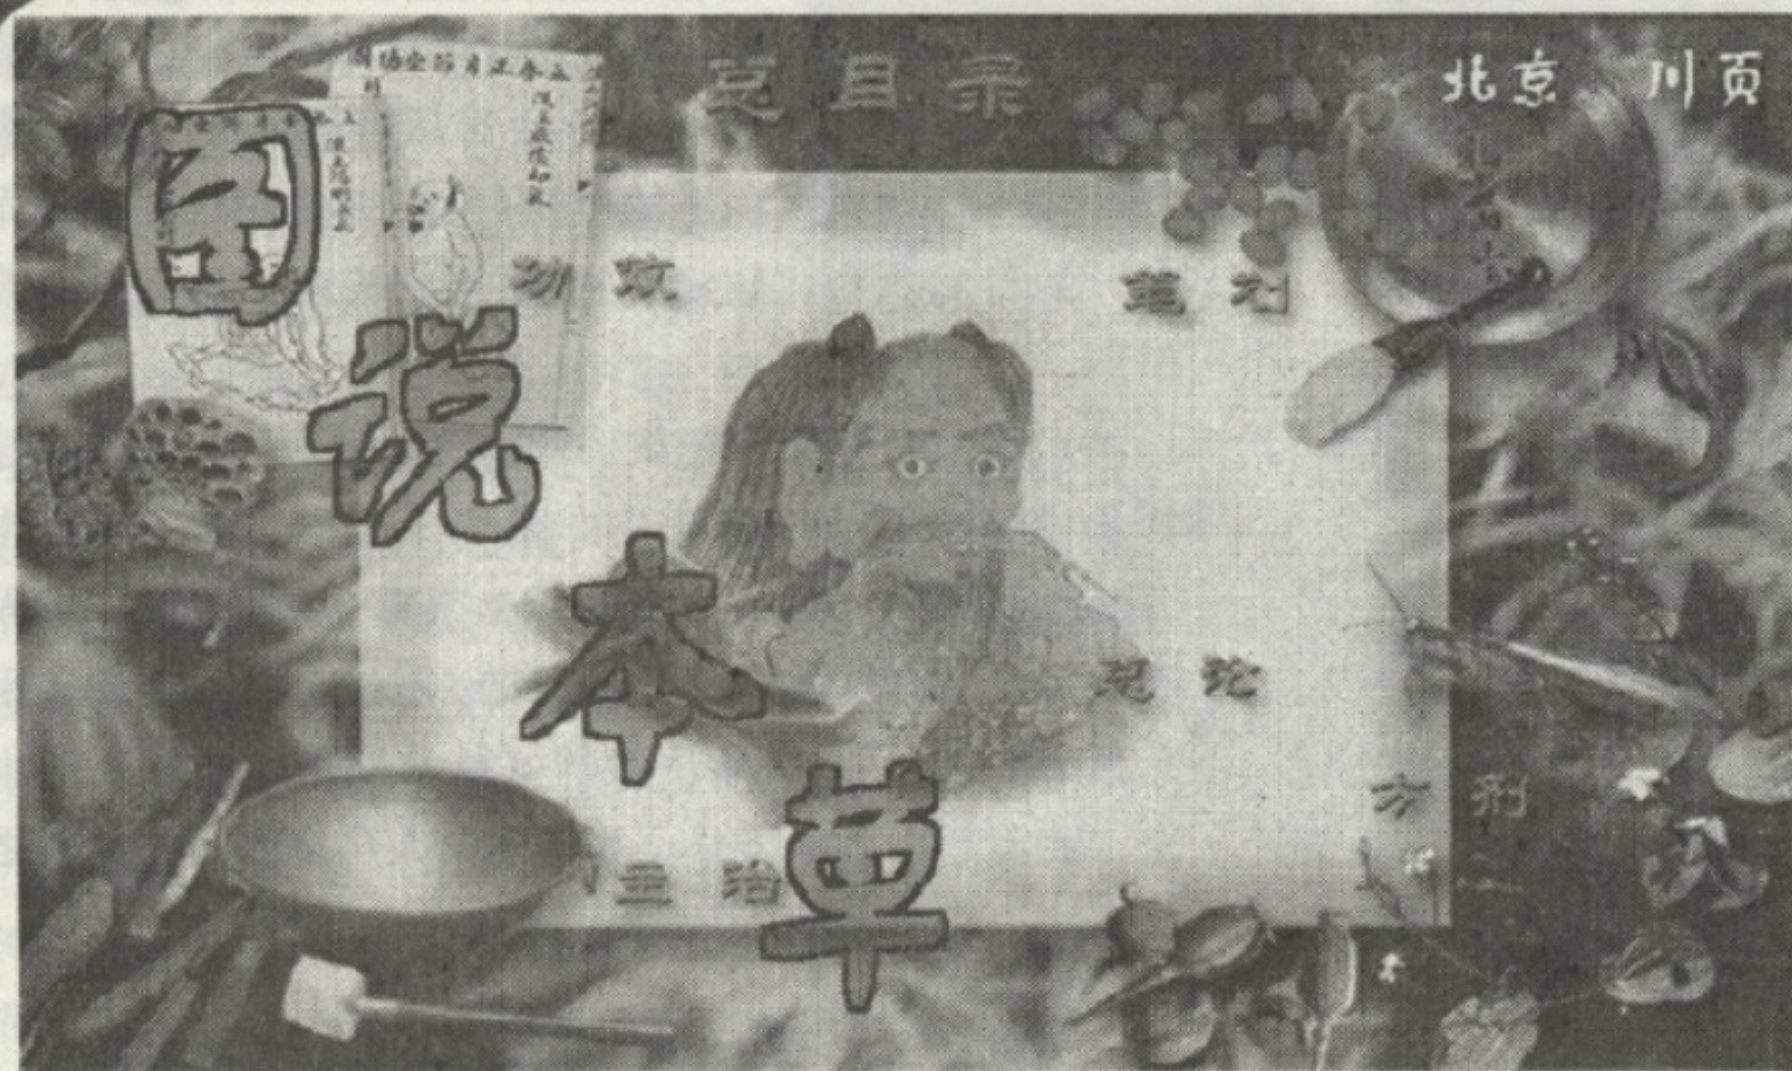 总目录
北京 川页
图说本草
功效
笔划
总论
方剂
主治